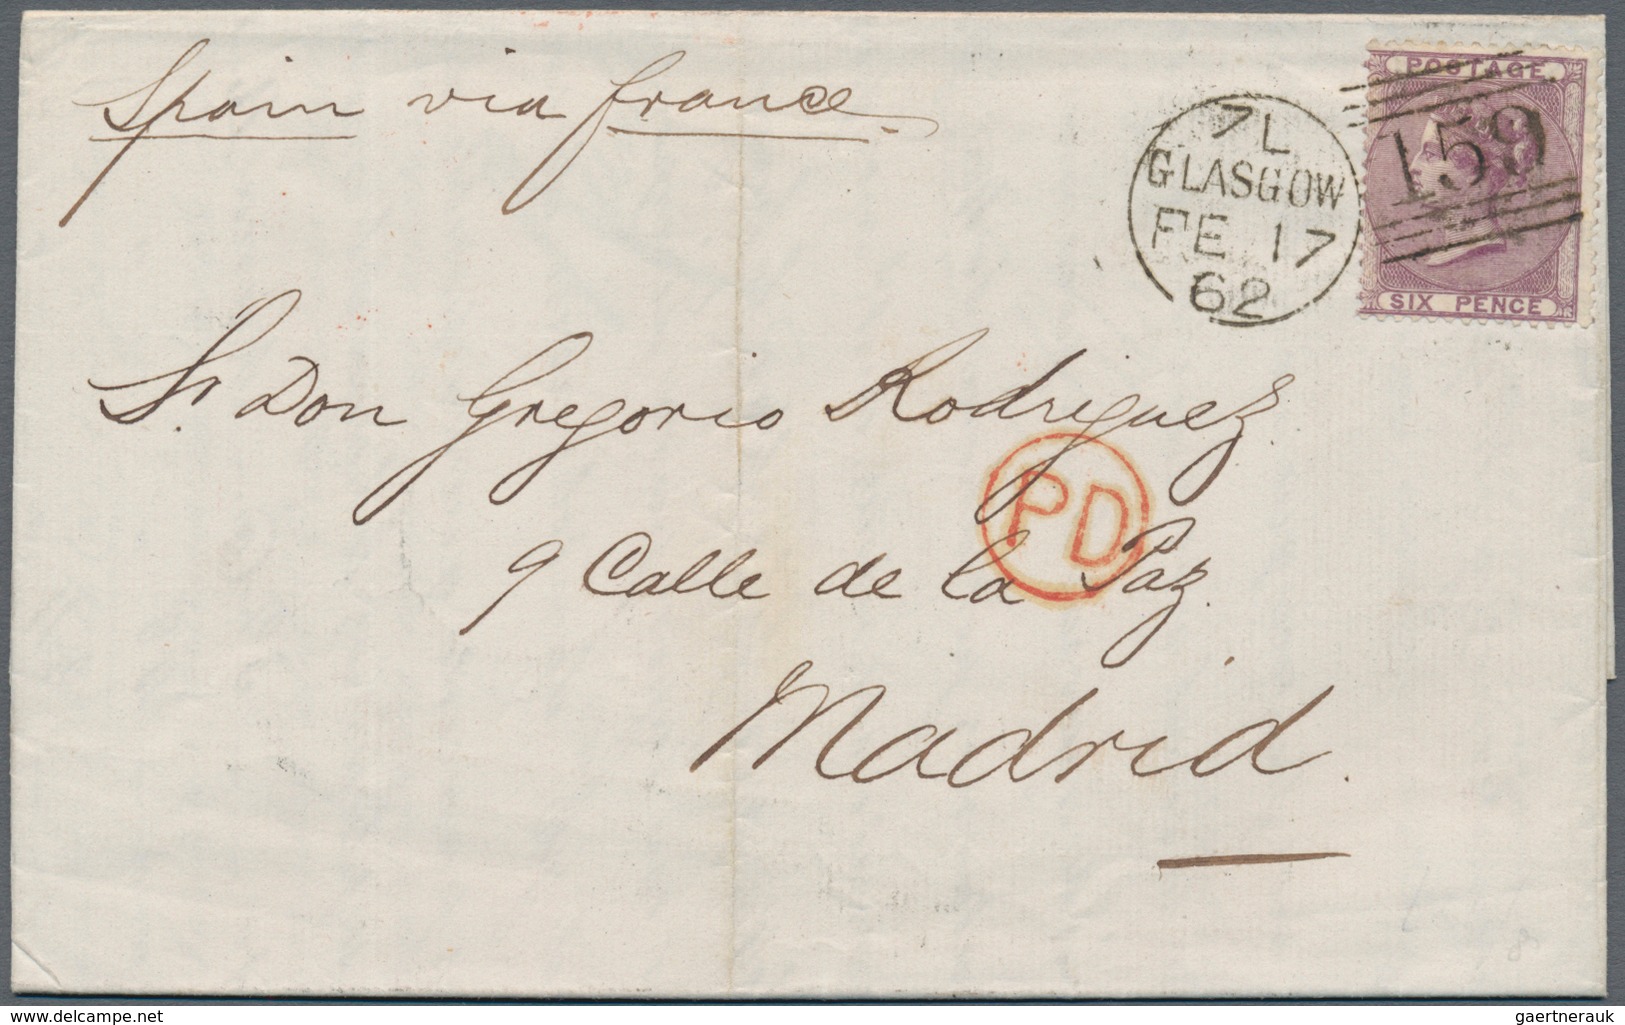 Spain via france
POSTAGE
159
SIX PENCE
7L
GLASGOW
FE 17
62
Sr. Don Gregorio Rodriguez
PD
9 Calle de la Paz.
Madrid.
delcampe.net
gaertnerauk